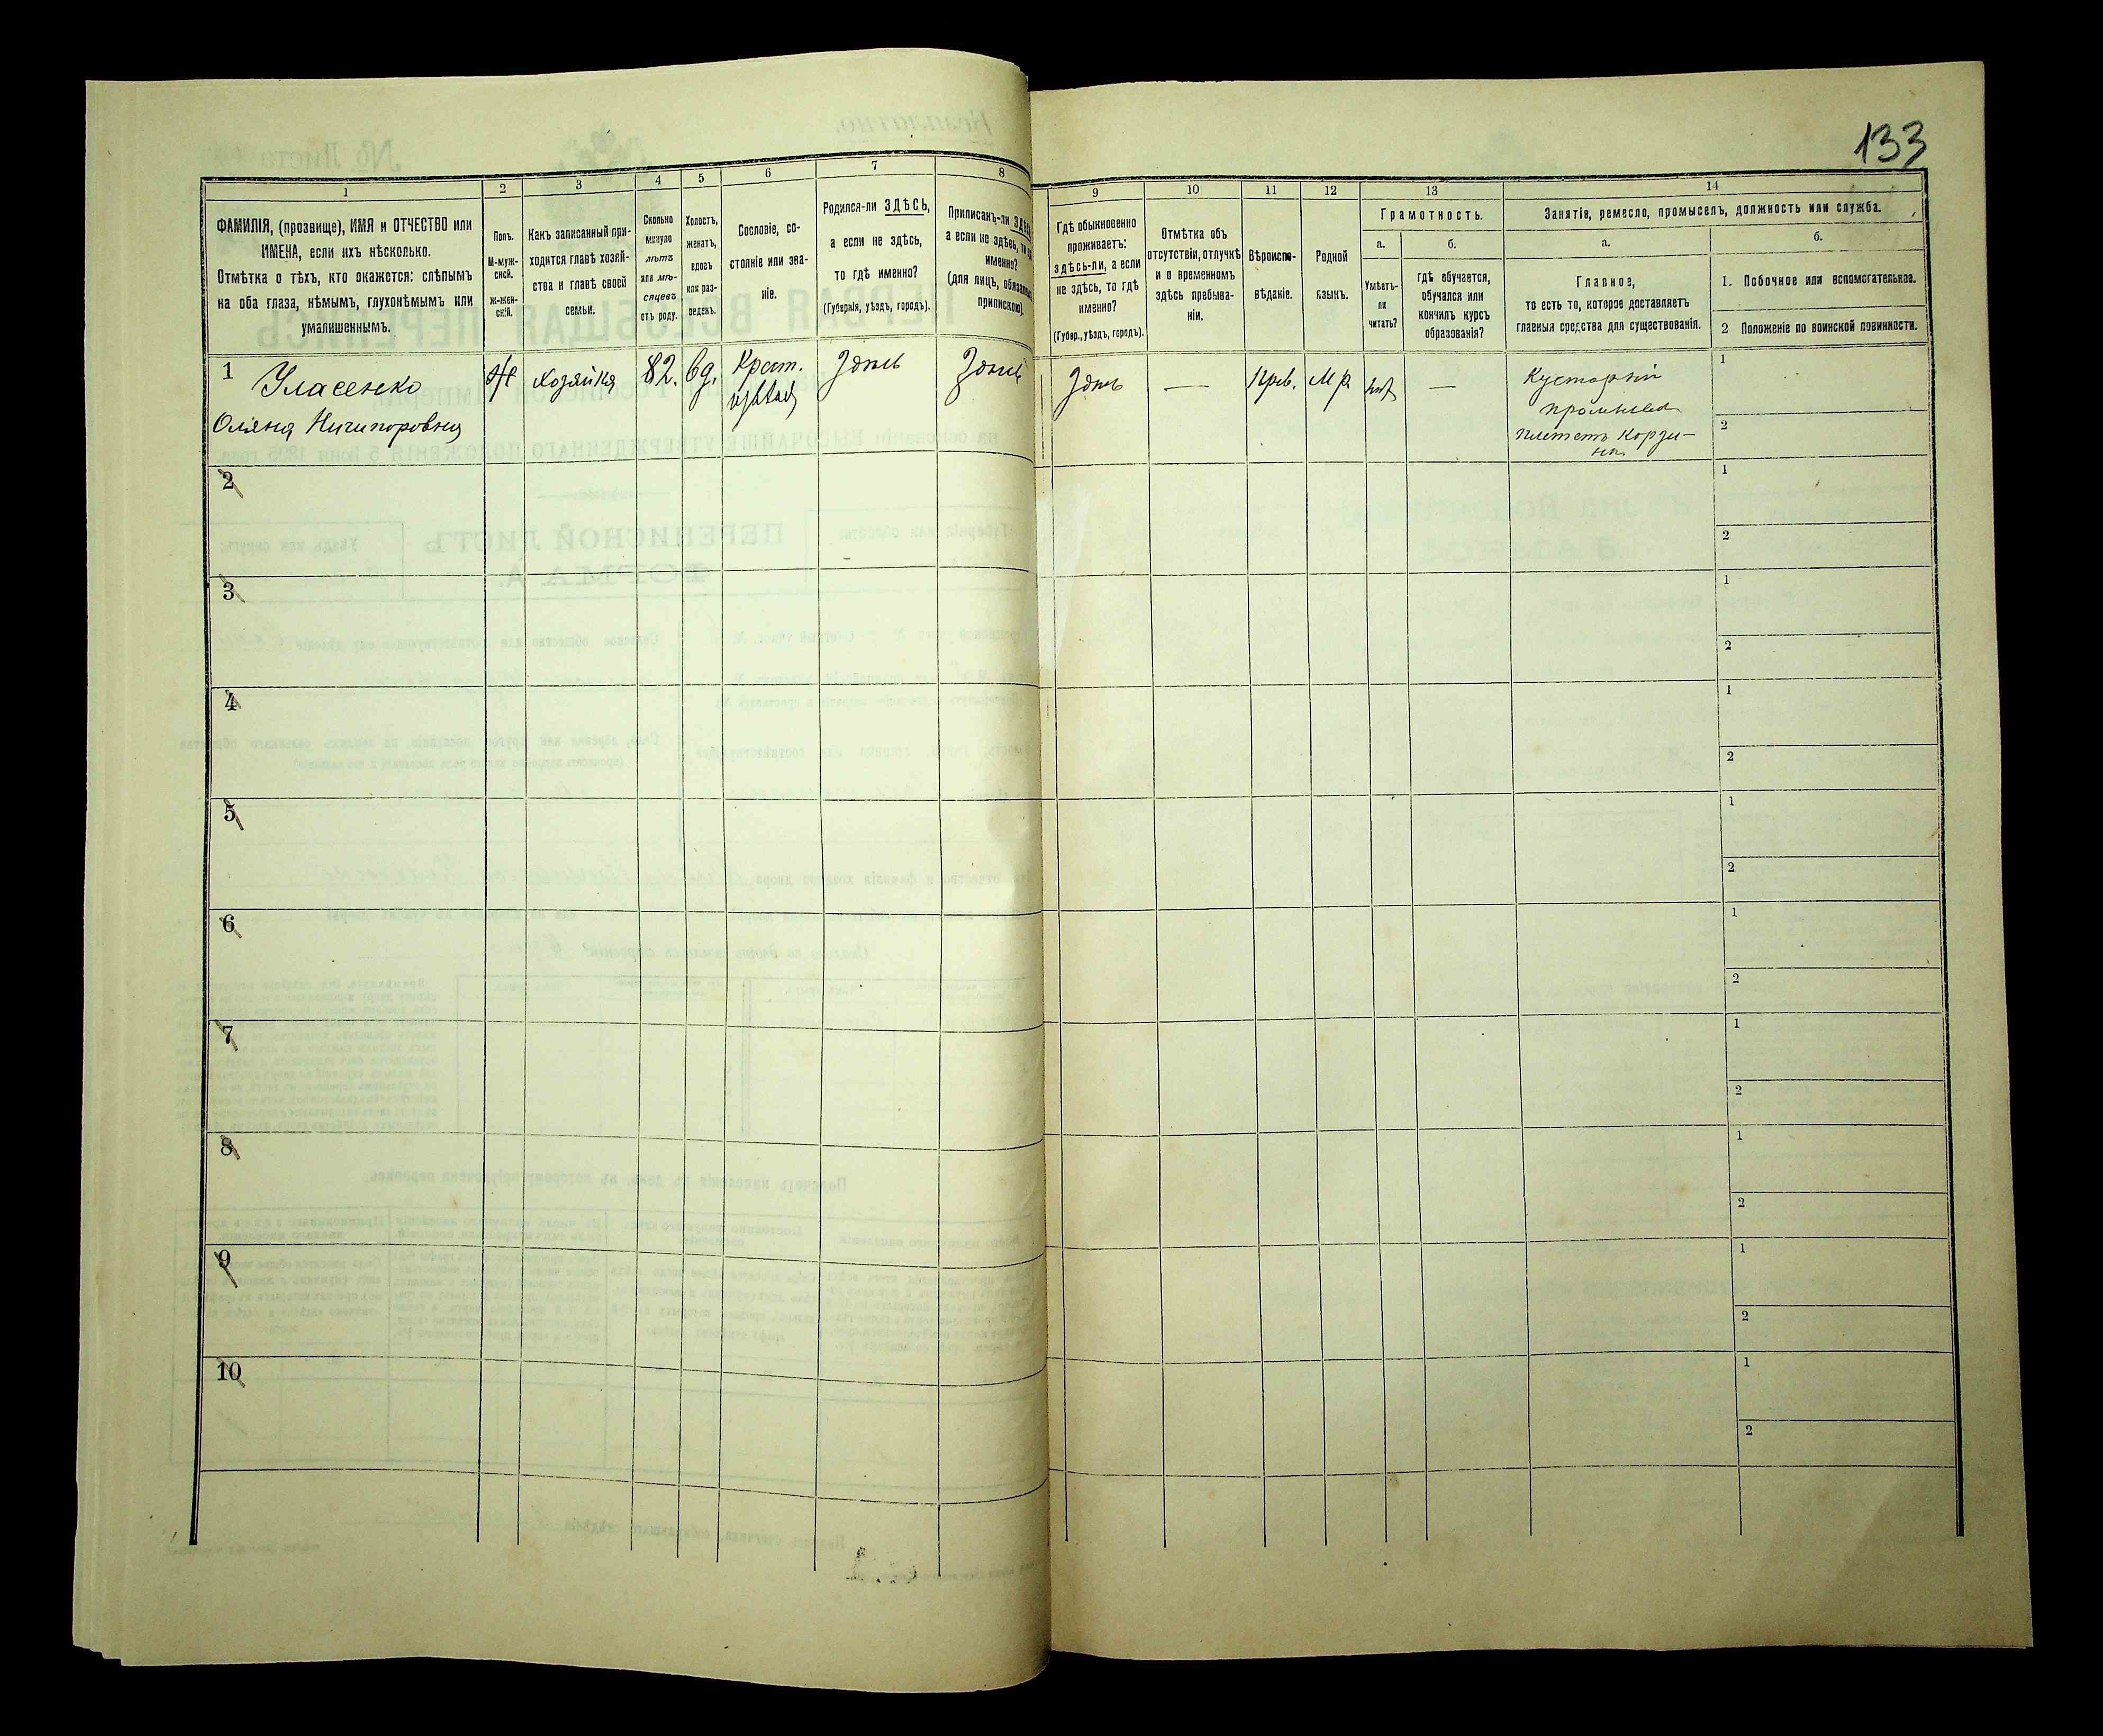 133
1 2 3 4 5 6 7 8 9 10 11 12 13 14
ФАМИЛІЯ, (прозвище), ИМЯ и ОТЧЕСТВО или
ИМЕНА, если ихъ нѣсколько.
Отмѣтка о тѣхъ, кто окажется: слѣпымъ
на оба глаза, нѣмымъ, глухонѣмымъ или
умалишеннымъ.
Полъ.
М-муж-
ской.
Ж-жен-
скій.
Какъ записанный при-
ходится главѣ хозяй-
ства и главѣ своей
семьи.
Сколько
минуло
лѣтъ
или мѣ-
сяцевъ
отъ роду.
Холостъ,
женатъ,
вдовъ
или раз-
веденъ.
Сословіе, со-
стояніе или зва-
ніе.
Родился-ли ЗДѢСЬ,
а если не здѣсь,
то гдѣ именно?
(Губернія, уѣздъ, городъ).
Приписанъ-ли ЗДѢСЬ,
а если не здѣсь, то гдѣ
именно?
(для лицъ, обязанныхъ
припискою).
Гдѣ обыкновенно
проживаетъ:
здѣсь-ли, а если
не здѣсь, то гдѣ
именно?
(Губер., уѣздъ, городъ).
Отмѣтка объ
отсутствіи, отлучкѣ
и о временномъ
здѣсь пребыва-
ніи.
Вѣроиспо-
вѣданіе.
Родной
языкъ.
Грамотность.
а.
Умѣетъ-
ли
читать?
б.
Гдѣ обучается,
обучался или
кончилъ курсъ
образованія?
Занятіе, ремесло, промыселъ, должность или служба.
а.
Главное,
то есть то, которое доставляетъ
главныя средства для существованія.
б.
1. Побочное или вспомогательное.
2 Положеніе по воинской повинности.
1 Уласенко
Оляна Ничипоровна
Ж
хозяйка
82.
вд.
Крест.
Здѣсь
Здѣсь
Здѣсь
—
Прав.
М р
нѣт
—
Кустарный
промысел
плететъ корзи-
ны
1
2
2
1
2
3
1
2
4
1
2
5
1
2
6
1
2
7
1
2
8
1
2
9
1
2
10
1
2